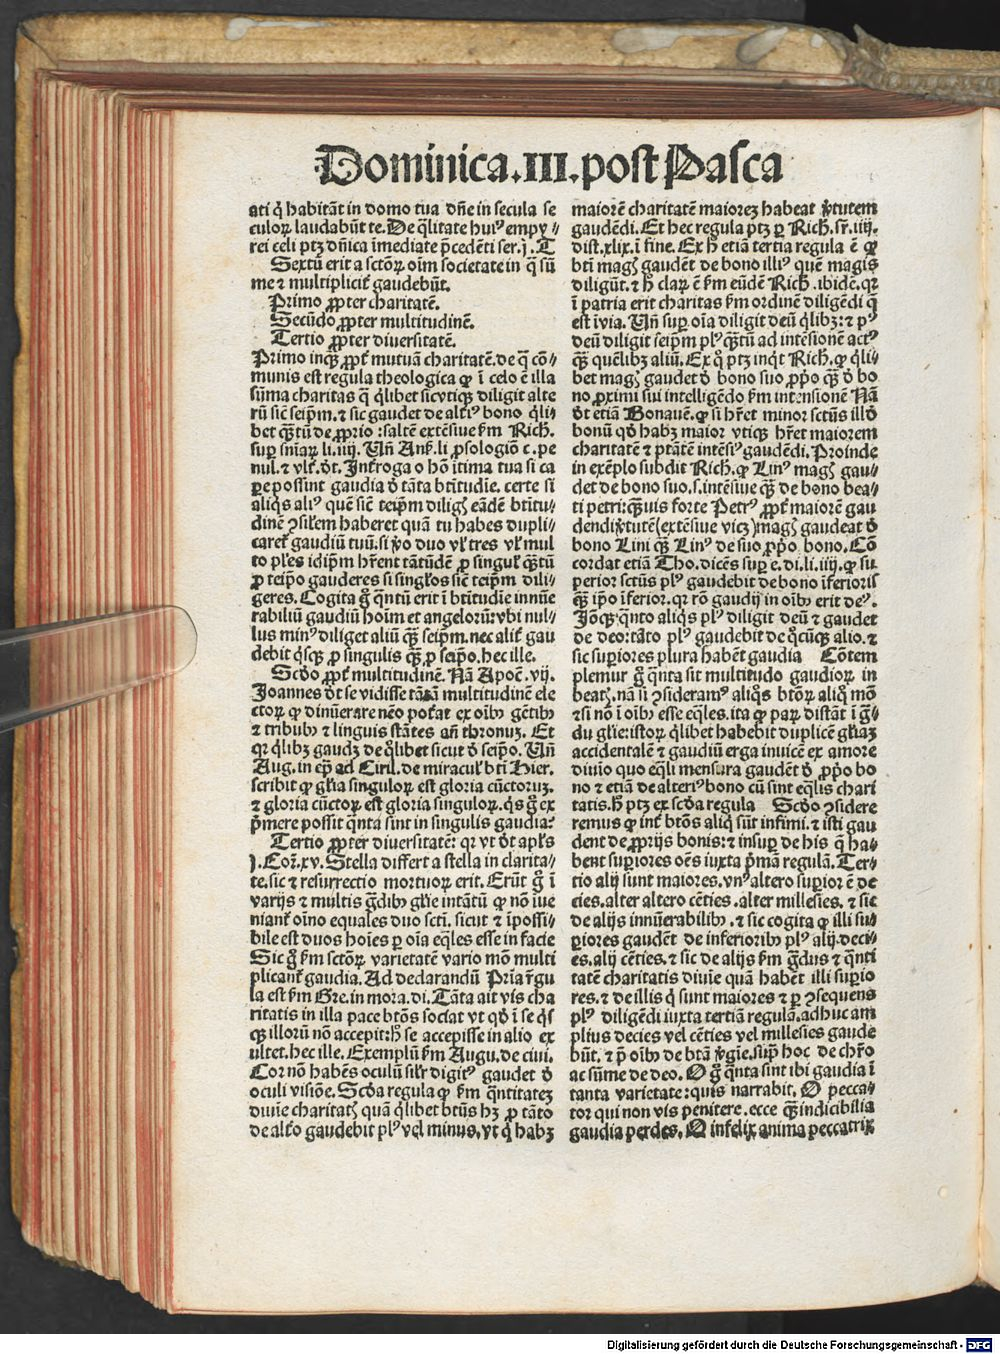 Dominica.III.post Pasca
ati q̇ habitāt in domo tua dn̄e in secula se
culoꝝ laudabūt te. De q̄litate huiꝰ empy⸗
rei celi ptꝫ dn̄ica īmediate p̄cedēti ser.j. T
Sextū erit a sctōꝝ oīm societate in q̄ sū
me ⁊ multiplicit̄ gaudebūt.
Primo ꝓpter charitatē.
Secūdo ꝓpter multitudinē.
Tertio ꝓpter diuersitatē.
Primo inqꝫ ꝓpt̄ mutuā charitatē. de q̄ cō⸗
munis est regula theologica ꝙ ī celo ē illa
sūma charitas q̄ q̄libet sicutiqꝫ diligit alte
rū sic̄ seip̄m. ⁊ sic gaudet de altiꝰ bono q̄li⸗
bet qꝫ̄tū de ꝓprio : saltē extēsiue ẜm Rich.
suꝑ sn̄iaꝝ li.iiij. Vn̄ Anẜ.li ꝓsologiō c.pe
nul. ⁊ vlt̄. dt̄. Int̄roga o hō ītima tua si ca
ꝑe possint gaudia d̄ tāta bt̄itudīe. certe si
aliq̄s aliꝰ quē sic̄ teip̄m diligꝭ eādē btītu⸗
dinē ꝯsil̄em haberet quā tu habes dupli⸗
caret̄ gaudiū tuū. si ꝟo duo vl̄ tres vl̄ mul
to pl̄es idip̄m hr̄ent tātūdē ꝓ singul̄ qꝫ̄tū
ꝓ teip̄o gauderes si singl̄os sic̄ teip̄m dili⸗
geres. Cogita g̊ qn̄tū erit ī bt̄itudīe innūe
rabiliū gaudiū hoīm et angeloꝝ: vbi nul⸗
lus minꝰ diliget aliū qꝫ̄ seip̄m. nec alit̄ gau
debit q̄sqꝫ ꝓ singulis qꝫ̄ ꝓ seip̄o. hec ille.
Scd̄o ꝓpt̄ multitudinē. Nā Apoc̄.vij.
Joannes dt̄ se vidisse tātā multitudinē ele
ctoꝝ ꝙ dinūerare nēo pot̄at ex oībꝫ gētibꝫ
⁊ tribubꝫ ⁊ linguis stātes an̄ thronuꝫ. Et
qꝛ q̄libꝫ gaudꝫ de q̄libet sicut d̄ seip̄o. Vn̄
Aug. in ep̄ ad Ciril. de miracul̄ bt̄i Hier.
scribit ꝙ gl̄ia singuloꝝ est gloria cūctoruꝫ.
⁊ gloria cūctoꝝ est gloria singuloꝝ. q̄s g̊ ex
p̄mere possit q̄nta sint in singulis gaudia?
Tertio ꝓpter diuersitatē: qꝛ vt dt̄ apl̄s
j.Coꝝ.xv. Stella differt a stella in clarita⸗
te. sic ⁊ resurrectio mortuoꝝ erit. Erūt g̊ ī
varijs ⁊ multis g̊dibꝫ gl̄ie intātū ꝙ nō īue
niant̄ oīno equales duo scti. sicut ⁊ īpossi⸗
bile est duos hoīes ꝑ oīa eq̄les esse in facie
Sic g̊ ẜm sctōꝝ varietatē vario mō multi
plicant̄ gaudia. Ad declarandū Prīa r̄gu
la est ẜm Gre. in mora. di. Tāta ait vis cha
ritatis in illa pace btōs sociat vt qd̄ ī se q̄s
qꝫ illorū nō accepit: hꝫ se accepisse in alio ex
ultet. hec ille. Exemplū ẜm Augu. de ciui.
Cor nō habēs oculū sil̄r digitꝰ gaudet d̄
oculi visiōe. Scd̄a regula ꝙ ẜm qn̄titateꝫ
diuīe charitatꝭ quā q̄libet btūs hꝫ ꝓ tāto
de alt̄o gaudebit plꝰ vel minus. vt q̇ habꝫ
maiorē charitatē maiorez habeat ꝟtutem
gaudēdi. Et hec regula ptꝫ ꝑ Rich. sr̄.iiij.
dist.xlix. ī fine. Ex h̄ etiā tertia regula ē ꝙ
btī magꝭ gaudēt de bono illiꝰ quē magis
diligūt. ⁊ h̄ claꝝ ē ẜm eūdē Rich. ibidē. qꝛ
ī patria erit charitas ẜm ordinē diligēdi q̄
est ī via. Vn̄ suꝑ oīa diligit deū q̄libꝫ: ⁊ pꝰ
deū diligit seip̄m plꝰ qꝫ̄tū ad intēsionē actꝰ
qꝫ̄ quēlibꝫ aliū. Ex q̊ ptꝫ inqt Rich. ꝙ q̄li⸗
bet magꝭ gaudet d̄ bono suo ꝓpō qꝫ̄ d̄ bo
no proximi sui intelligēdo ẜm intensionē Nā
dt̄ etiā Bonauē. ꝙ si hr̄et minor sctūs illd̄
bonū qd̄ habꝫ maior vtiqꝫ hr̄et maiorem
charitatē ⁊ ptātē intēsiꝰ gaudēdi. Proinde
in exēplo subdit Rich. ꝙ Linꝰ magꝭ gau⸗
det de bono suo. s. intēsiue qꝫ̄ de bono bea⸗
ti petri: qꝫ̄uis forte Petrꝰ ꝓpt̄ maiorē gau
dendi ꝟtutē (extēsiue vicꝫ) magꝭ gaudeat d̄
bono Lini qꝫ̄ Linꝰ de suo ꝓpō bono. Cō
cordat etiā Tho. dicēs suꝑ e. di. li. iiij. ꝙ su
perior sctūs plꝰ gaudebit de bono īferioris
qꝫ̄ ip̄o īferior. qꝛ rō gaudij in oībꝫ erit deꝰ.
Jōqꝫ q̄nto aliq̄s plꝰ diligit deū ⁊ gaudet
de deo: tāto plꝰ gaudebit de q̊cūqꝫ alio. ⁊
sic suꝑiores plura habēt gaudia Cōtem
plemur g̊ q̄nta sit multitudo gaudioꝝ in
beatꝭ. nā si ꝯsideramꝰ aliq̄s btōꝝ aliq̊ mō
⁊ si nō ī oībꝫ esse eq̄les. ita ꝙ paꝝ distāt ī g̊⸗
du gl̄ie: istoꝝ q̄libet habebit duplicē gl̄iaꝫ
accidentalē ⁊ gaudiū erga inuicē ex amore
diuīo quo eq̄li mensura gaudēt d̄ ꝓpō bo
no ⁊ etiā de alteriꝰ bono cū sint eq̄lis chari
tatis. h̄ ptꝫ ex scd̄a regula Scd̄o ꝯsidere
remus ꝙ int̄ btōs aliq̇ sūt infimi. ⁊ isti gau
dent de ꝓprijs bonis: ⁊ insuꝑ de his q̄ ha⸗
bent suꝑiores oēs iuxta p̄mā regulā. Ter⸗
tio alij sunt maiores. vnꝰ altero suꝑior ē de
cies. alter altero cēties. alter millesies. ⁊ sic
de alijs innūerabilibꝫ. ⁊ sic cogita ꝙ illi su⸗
ꝑiores gaudēt de inferioribꝫ plꝰ alij. deci⸗
es. alij cēties. ⁊ sic de alijs ẜm g̊dus ⁊ qn̄ti
tatē charitatis diuīe quā habēt illi suꝑio
res. ⁊ de illis q̇ sunt maiores ⁊ ꝑ ꝯsequens
plꝰ diligēdi iuxta tertiā regulā. adhuc am
plius decies vel cēties vel millesies gaude
būt. ⁊ p̄ oībꝫ de btā ꝟgīe. suꝑ hoc de chr̄o
ac sūme de deo. O g̊ q̄nta sunt ibi gaudia ī
tanta varietate: quis narrabit. O pecca⸗
tor qui non vis penitere. ecce qꝫ̄ indicibilia
gaudia perdes. O infelix anima peccatrix
Digitalisierung gefördert durch die Deutsche Forschungsgemeinschaft - DFG